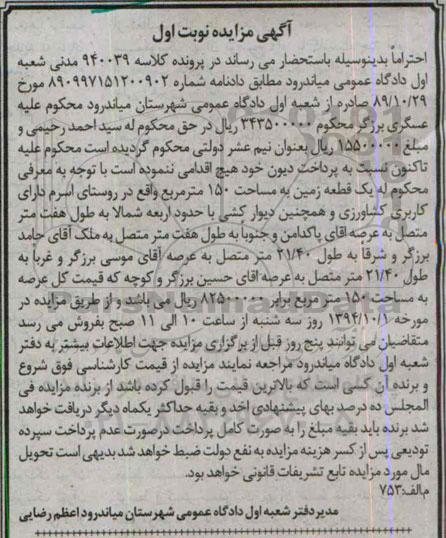 آگهی مزایده نوبت اول
احتراماً بدینوسیله باستحضار می رساند در پرونده کلاسه ۹۴۰۰۳۹ مدنی شعبه
اول دادگاه عمومی میاندرود مطابق دادنامه شماره ۸۹۰۹۹۷۱۵۱۲۰۰۹۰۲ مورخ
۸۹/۱۰/۲۹ صادره از شعبه اول دادگاه عمومی شهرستان میاندرود محکوم علیه
عسگری برزگر محکوم به ریال در حق محکوم له سید احمد رحیمی و
مبلغ ۱۵۵۰۰۰۰۰ ریال بعنوان نیم عشر دولتی محکوم گردیده است محکوم علیه
تاکنون نسبت به پرداخت دیون خود هیچ اقدامی ننموده است با توجه به معرفی
محکوم له یک قطعه زمین به مساحت ۱۵۰ مترمربع واقع در روستای اسرم دارای
کاربری کشاورزی و همچنین دیوار کشی با حدود اربعه شمالا به طول هفت متر
متصل به عرصه آقای پاکدامن و جنوباً به طول هفت متر متصل به ملک آقای حامد
برزگر و شرقاً به طول ۲۱/۴۰ متر متصل به عرصه آقای موسی برزگر و غرباً به
طول ۲۱/۴۰ متر متصل به عرصه آقای حسین برزگر و کوچه که قیمت کل عرصه
به مساحت ۱۵۰ متر مربع برابر ریال می باشد و از طریق مزایده در
مورخه ۱۳۹۴/۱۰/۱ روز سه شنبه از ساعت ۱۰ الی ۱۱ صبح بفروش می رسد
متقاضیان می توانند پنج روز قبل از برگزاری مزایده جهت اطلاعات بیشتر به دفتر
شعبه اول دادگاه میاندرود مراجعه نمایند مزایده از قیمت کارشناسی فوق شروع
و برنده آن کسی است که بالاترین قیمت را قبول کرده باشد از برنده مزایده فی
المجلس ده درصد بهای پیشنهادی اخذ و بقیه حداکثر یکماه دیگر دریافت خواهد
شد برنده باید بقیه مبلغ را به صورت کامل پرداخت درصورت عدم پرداخت سپرده
تودیعی پس از کسر هزینه مزایده به نفع دولت ضبط خواهد شد بدیهی است تحویل
مال مورد مزایده تابع تشریفات قانونی خواهد بود.
م/الف:۷۵۳
مدیردفتر شعبه اول دادگاه عمومی شهرستان میاندرود اعظم رضایی